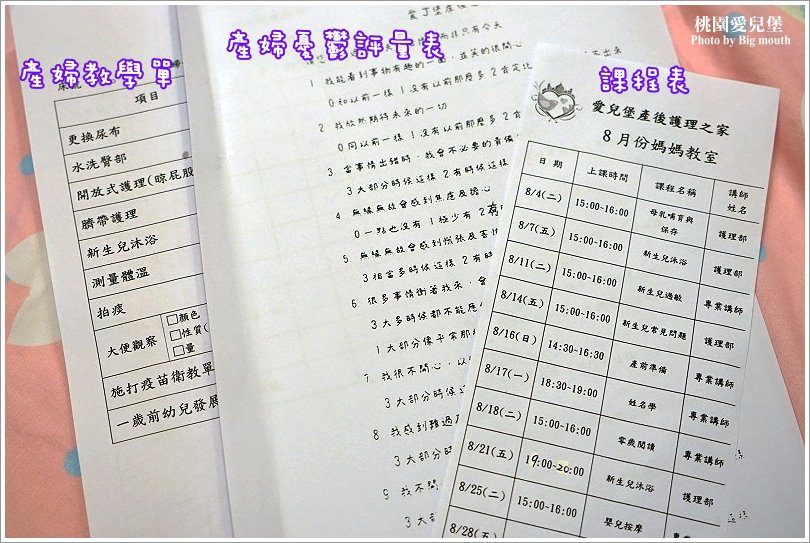 桃園愛兒堡
Photo by Big mouth
產婦教學單
項目
更換尿布
水洗臀部
開放式護理(晾屁股
臍帶護理
新生兒沐浴
測量體溫
拍痰
大便觀察
□顏色
□性質(
□量
施打疫苗衛教單
一歲前幼兒發展
產婦憂鬱評量表
愛丁堡產後
1 我能看到事物有趣的一面,並笑的很開心
0 同以前一樣 1 沒有以前那麼多 2 肯定比
不出來
2 我欣然期待未來的一切
0 同以前一樣 1 沒有以前那麼多 2 肯
3 當事情出錯時,我會不必要的責備
3 大部分時候這樣 2 有時候這樣
4 無緣無故會感到焦慮及擔心
0 一點也沒有 1 極少有 2 有
5 無緣無故會感到慌張及害怕
3 相當多時候這樣 2 有時
6 很多事情衝著我來,會
3 大多時候都不能應
1 大部分像平常那
7 我很不開心,以
3 大部分時候這
8 我感到難過
3 大部分時
9 我不
3 大部
課程表
愛兒堡產後護理之家
8月份媽媽教室
日期 上課時間 課程名稱 講師姓名
8/4(二) 15:00~16:00 母乳哺育與保存 護理部
8/7(五) 15:00~16:00 新生兒沐浴 護理部
8/11(二) 15:00~16:00 新生兒過敏 專業講師
8/14(五) 15:00~16:00 新生兒常見問題 護理部
8/16(日) 14:30~16:30 產前準備 專業講師
8/17(一) 18:30~19:00 姓名學 專業講師
8/18(二) 15:00~16:00 零歲閱讀 專業講師
8/21(五) 19:00~20:00 新生兒沐浴 護理部
8/25(二) 15:00~16:00 嬰兒按摩
8/28(五